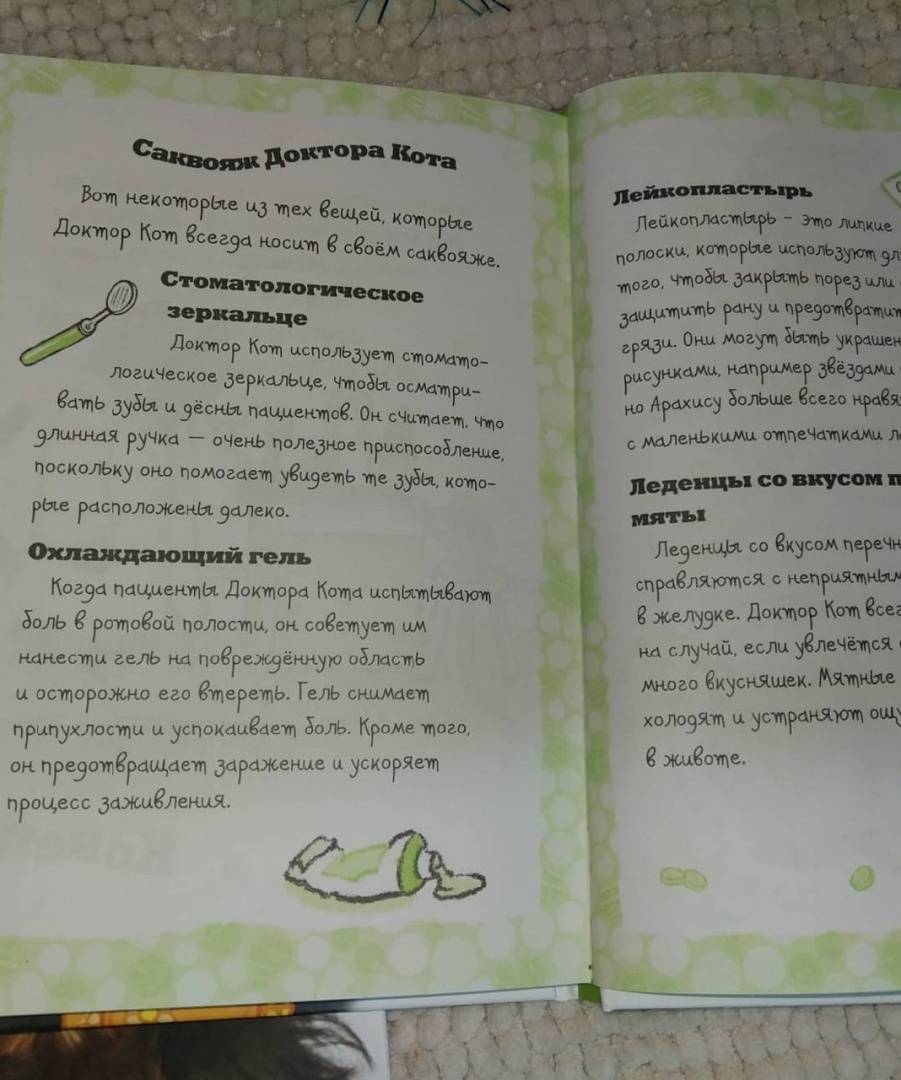 Саквояж Доктора Кота
Вот некоторые из тех вещей, которые
Доктор Кот всегда носит в своём саквояже.
Стоматологическое
зеркальце
Доктор Кот использует стомато-
логическое зеркальце, чтобы осматри-
вать зубы и дёсны пациентов. Он считает, что
длинная ручка — очень полезное приспособление,
поскольку оно помогает увидеть те зубы, кото-
рые расположены далеко.
Охлаждающий гель
Когда пациенты Доктора Кота испытывают
боль в ротовой полости, он советует им
нанести гель на повреждённую область
и осторожно его втереть. Гель снимает
припухлости и успокаивает боль. Кроме того,
он предотвращает заражение и ускоряет
процесс заживления.
Лейкопластырь
Лейкопластырь – это липкие
полоски, которые используют
того, чтобы закрыть порез или
защитить рану и
грязи. Они могут быть
рисунками, например звёздами
но Арахису больше всего
с маленькими отпечатками
Леденцы со вкусом
мяты
Леденцы со вкусом
справляются с
в желудке. Доктор Кот
на случай, если увлечётся
много вкусняшек. Мятные
холодят и устраняют
в животе.